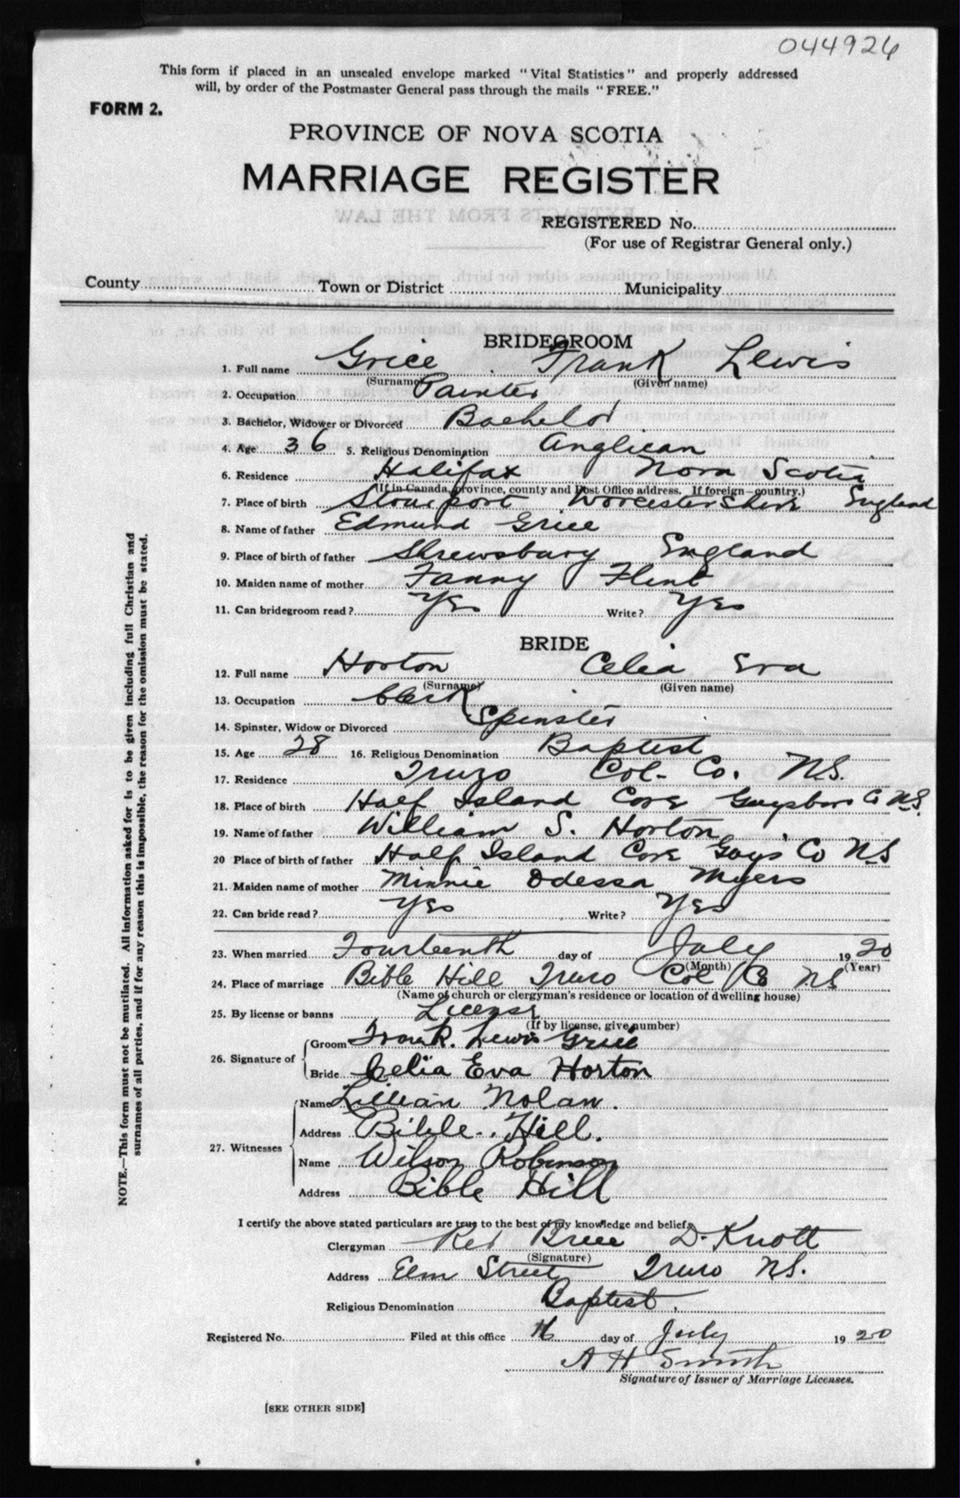 044926
This form if placed in an unsealed envelope marked "Vital Statistics" and properly addressed
will, by order of the Postmaster General pass through the mails "FREE."
FORM 2.
PROVINCE OF NOVA SCOTIA
MARRIAGE REGISTER
REGISTERED No.
(For use of Registrar General only.)
County Town or District Municipality
BRIDEGROOM
1. Full name Grice Frank Lewis
(Surname) (Given name)
2. Occupation Painter
3. Bachelor, Widower or Divorced Bachelor
4. Age 36 5. Religious Denomination Anglican
6. Residence Halifax Nova Scotia
(If in Canada, province, county and Post Office address. If foreign—country.)
7. Place of birth Stourport Worcestershire England
8. Name of father Edmund Grice
9. Place of birth of father Shrewsbury England
10. Maiden name of mother Fanny Flint
11. Can bridegroom read? Yes Write? Yes
BRIDE
12. Full name Horton Celia Eva
(Surname) (Given name)
13. Occupation Clerk
14. Spinster, Widow or Divorced Spinster
15. Age 28 16. Religious Denomination Baptist
17. Residence Truro Col. Co. N.S.
18. Place of birth Half Island Cove Guysboro Co N.S.
19. Name of father William S. Horton
20 Place of birth of father Half Island Cove Guys' Co NS
21. Maiden name of mother Minnie Odessa Myers
22. Can bride read? Yes Write? Yes
23. When married Fourteenth day of July 1920
(Month) (Year)
24. Place of marriage Bible Hill Truro Col Co NS
(Name of church or clergyman's residence or location of dwelling house)
25. By license or banns License
(If by license, give number)
26. Signature of Groom Frank. Lewis Grice
Bride Celia Eva Horton
27. Witnesses Name Lillian Nolan.
Address Bible Hill.
Name Wilson Robinson
Address Bible Hill
I certify the above stated particulars are true to the best of my knowledge and belief.
Clergyman Rev Brice D. Knott
(Signature)
Address Elm Street Truro N.S.
Religious Denomination Baptist.
Registered No. Filed at this office 16 day of July 1920
A H Smith
Signature of Issuer of Marriage Licenses.
[SEE OTHER SIDE]
NOTE.—This form must not be mutilated. All information asked for is to be given including full Christian and
surnames of all parties, and if for any reason this is impossible, the reason for the omission must be stated.